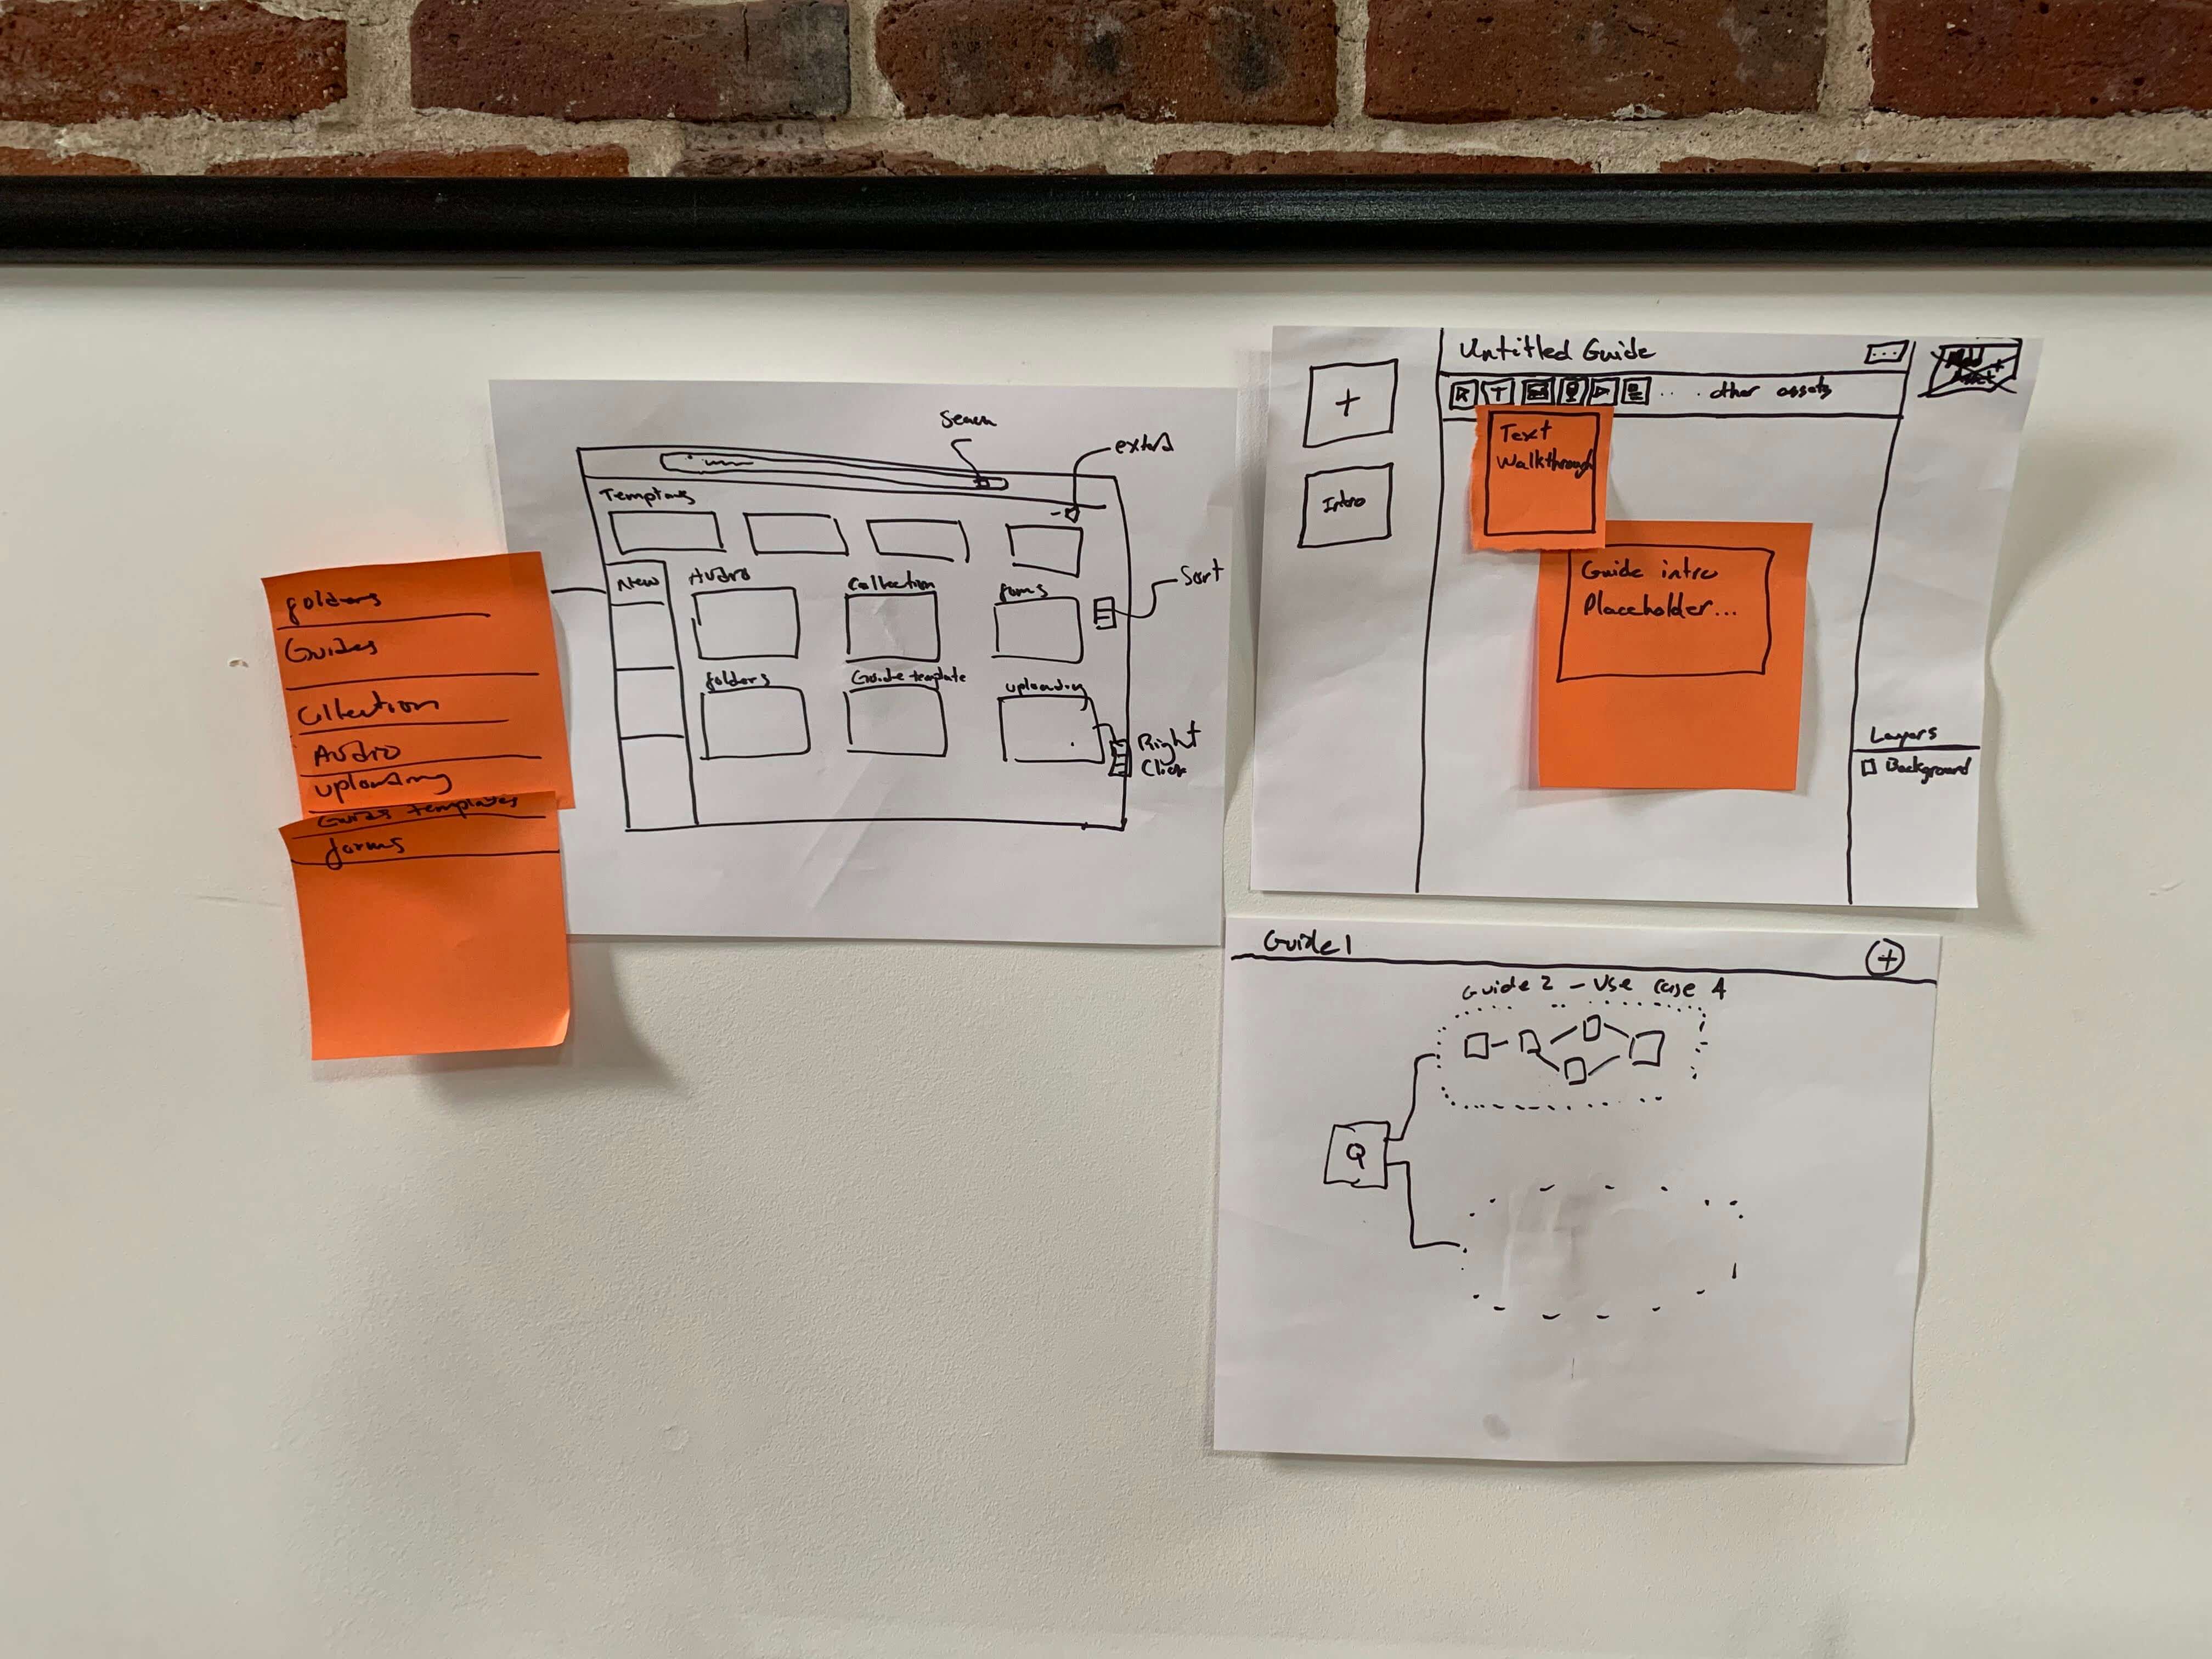 folders
Guides
Collection
Audio
uploading
Guids templates
forms
Search
extend
Templates
New
Audio
Collection
forms
Sort
folders
Guide template
uploading
Right
Click
+
Intro
Untitled Guide
...
T
... other assets
Text
Walkthrough
Guide intro
Placeholder...
Layers
Background
Guide 1
+
Guide 2 - Use case 4
Q